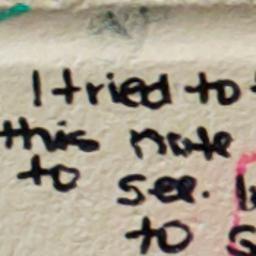 I tried to
this note
to see.
to